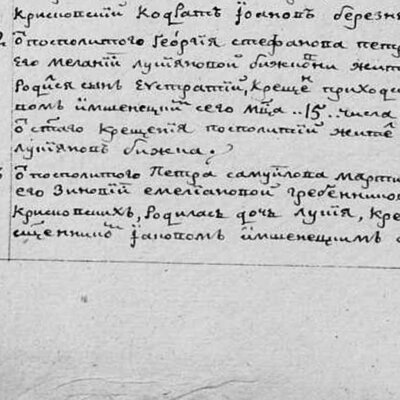 Крисковскій Кодратъ Іоановъ березн
ѿ посполитого Георгія стефанова петр
его Меланіи лукіяновой бижкони жит
Родися сынъ Еустратій, Крещен приходс
номъ Імшенецкій сего мца ..15.. числа
ѿ стаго крещенія посполитій жите
лукіяновъ бижка.
ѿ посполитого Петра самуйлова мартин
его Зиновіи емеліановой гребенников
Крисковскихъ, Родиласъ дочь лукія, Кре
сщенникѡ Іаковомъ Імшенецкимъ